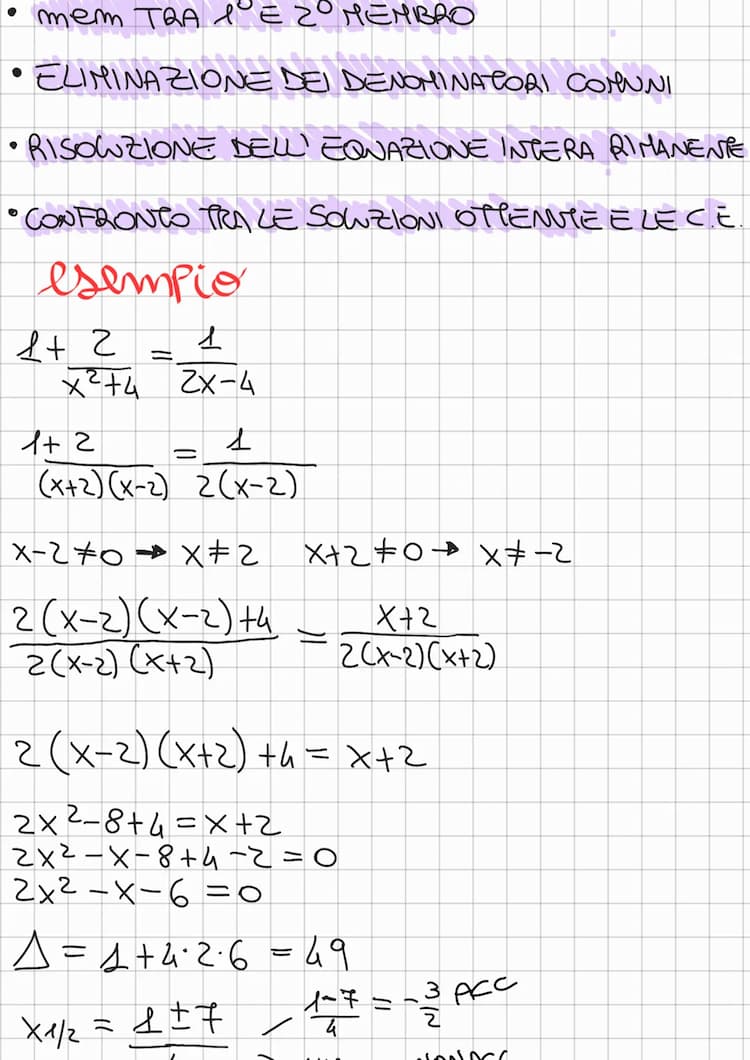 • mcm TRA 1° E 2° MEMBRO
• ELIMINAZIONE DEI DENOMINATORI COMUNI
• RISOLUZIONE DELL' EQUAZIONE INTERA RIMANENTE
• CONFRONTO TRA LE SOLUZIONI OTTENUTE E LE C.E.
esempio
1 + 2/(x²+4) = 1/(2x-4)
(1+2)/((x+2)(x-2)) = 1/(2(x-2))
x-2≠0 → x≠2 x+2≠0 → x≠-2
(2(x-2)(x-2)+4)/(2(x-2)(x+2)) = (x+2)/(2(x-2)(x+2))
2(x-2)(x+2)+4 = x+2
2x²-8+4=x+2
2x²-x-8+4-2=0
2x²-x-6=0
Δ = 1+4·2·6 = 49
x1/2 = 1±7 / (1-7)/4 = -3/2 ACC